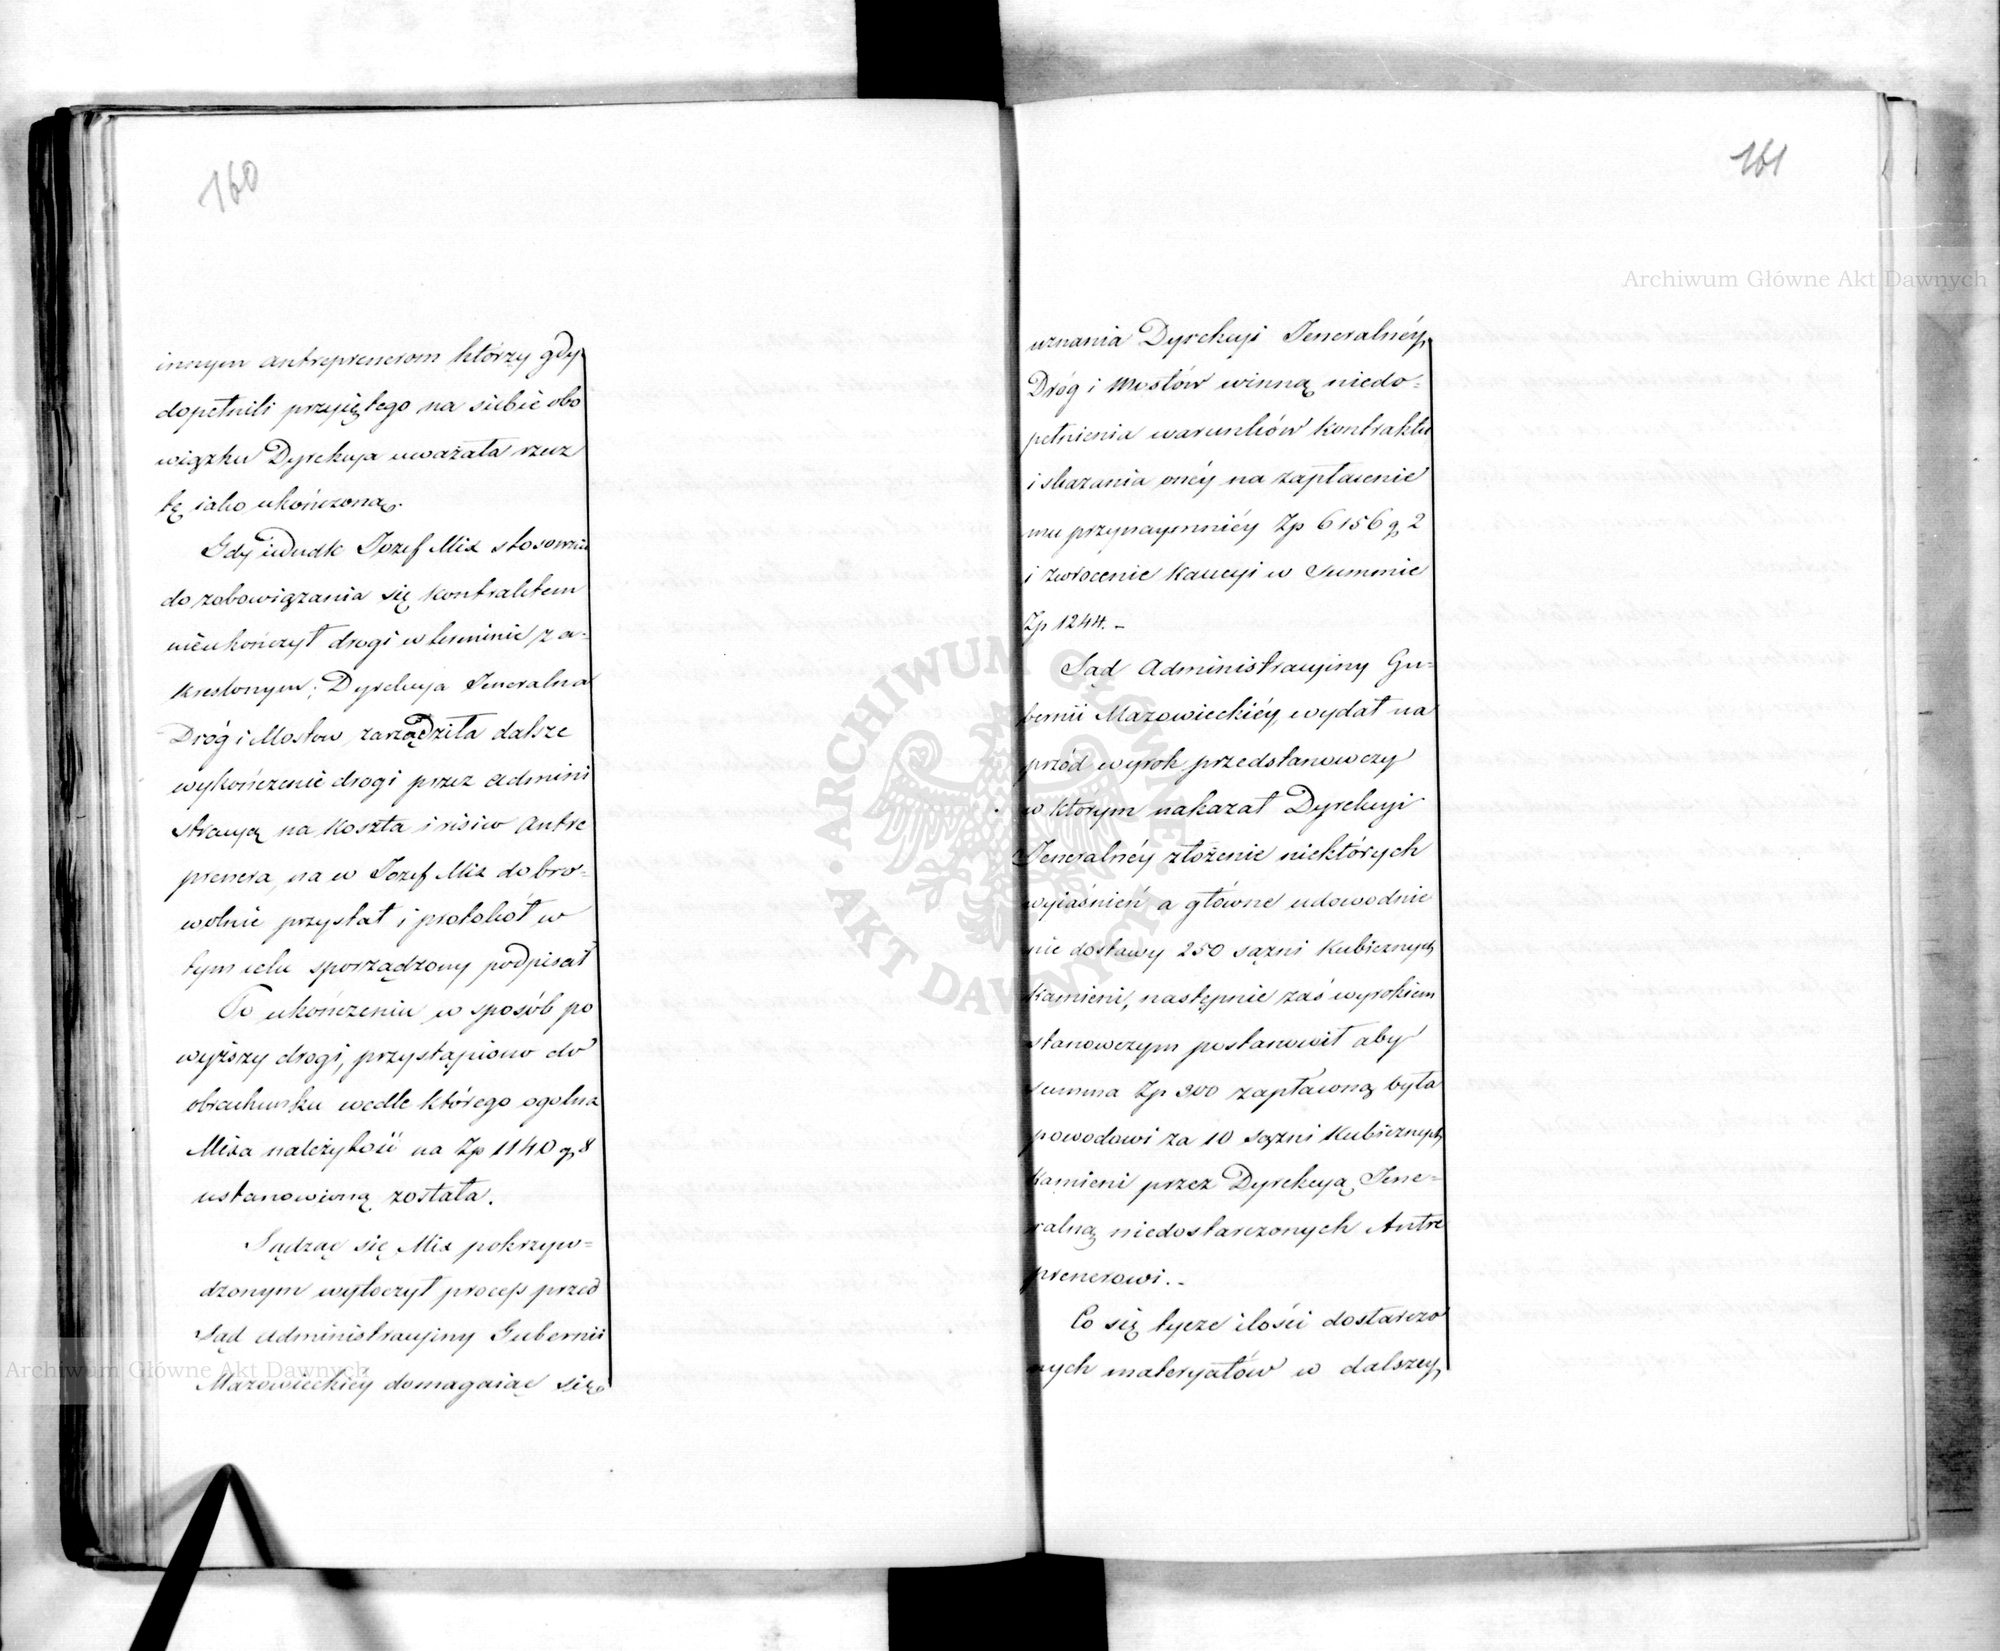 160
innym antreprenerom którzy gdy
dopełnili przyiętego na siebie obo
wiązku Dyrekcya uważała rzecz
tę iako ukończoną.
Gdy iednak Jozef Mix stosownie
do zobowiązania się kontraktem
nieukończył drogi w terminie za-
kreslonym; Dyrekcya Jeneralna
Dróg i Mostow zarządziła dalsze
wykończenie drogi przez admini
stracyą na koszta i risico Antre
prenera, na co Jozef Mix dobro-
wolnie przystał i protokół w
tym celu sporządzony podpisał
Po ukończeniu w sposób po
wyższy drogi, przystąpiono do
obrachunku wedle którego ogolna
Mixa należytość na Zp 1140 g 8
ustanowioną została.
Sądząc się Mix pokrzyw=
dzonym wytoczył process przed
Sąd Administracyiny Gubernii
Mazowieckiey domagaiąc się
161
uznania Dyrekcyi Jeneralnéy
Dróg i Mostów winną niedo-
pełnienia warunków kontraktu
i skazania onéy na zapłacenie
mu przynaymniéy Zp 6156 g 2
i zwrócenie Kaucyi w Summie
Zp 1244. -
Sąd Administracyiny Gu=
bernii Mazowieckiéy wydał na
przód wyrok przedstanowczy
w ktorym nakazał Dyrekcyi
Jeneralnéy złożenie niektórych
wyiaśnień a główne udowodnie
nie dostawy 250 sążni Kubicznych
Kamieni, następnie zaś wyrokiem
stanowczym postanowił aby
summa Zp 300 zapłaconą była
powodowi za 10 sążni Kubicznych
Kamieni przez Dyrekcyą Jene-
ralną niedostarczonych Antre
prenerowi. -
Co się tycze ilości dostarczo
nych materyałów w dalszey
Archiwum Główne Akt Dawnych
Archiwum Główne Akt Dawnych
ARCHIWUM GŁÓWNE AKT DAWNYCH